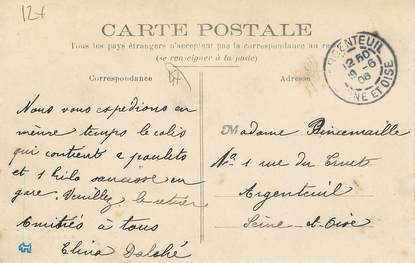 12+
CARTE POSTALE
Tous les pays étrangers n'acceptent pas la correspondance au
(se renseigner à la poste)
Correspondance
Adresse
ARGENTEUIL
12 50
9-6
08
SEINE ET OISE
Nous vous expédions en
même temps le colis
qui contient 2 poulets
et 1 kilo saucisse en
gare. Veuillez le retirer
Amitiés à tous
Elina Dalché
Madame Pincemaille
1 rue du
Argenteuil
Seine et Oise